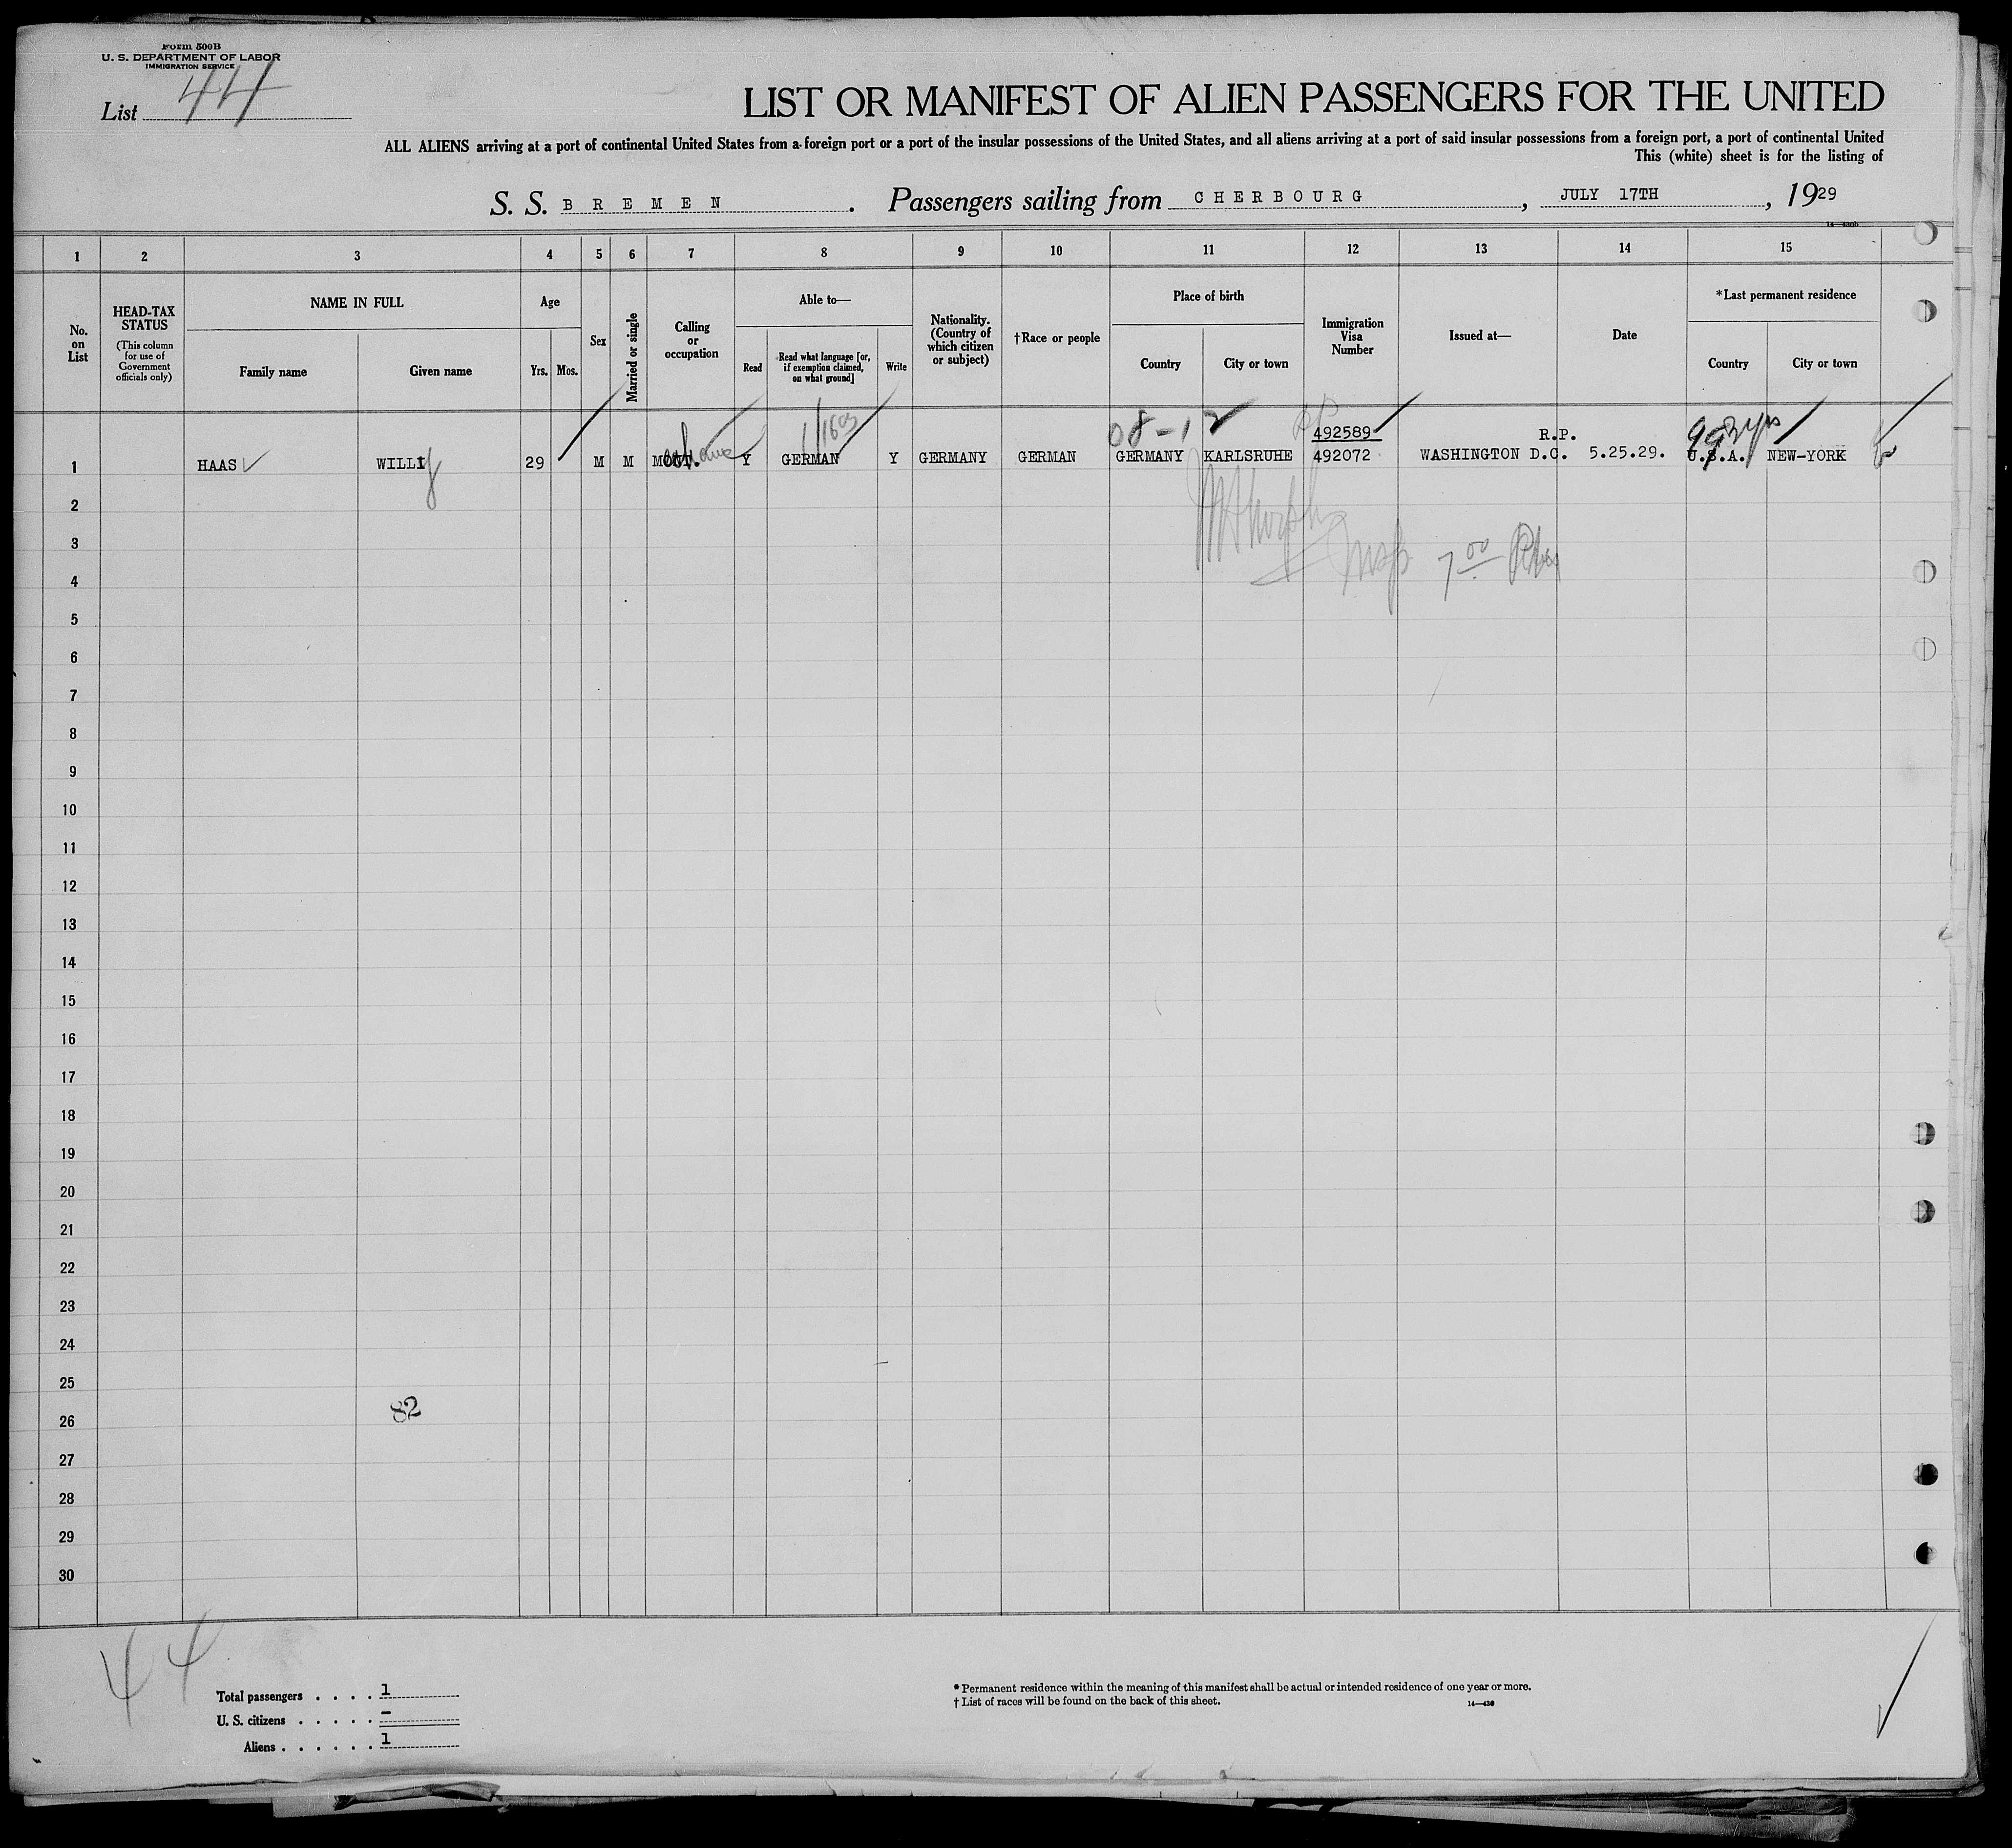 Form 500B
U. S. DEPARTMENT OF LABOR
IMMIGRATION SERVICE
List 44
LIST OR MANIFEST OF ALIEN PASSENGERS FOR THE UNITED
ALL ALIENS arriving at a port of continental United States from a foreign port or a port of the insular possessions of the United States, and all aliens arriving at a port of said insular possessions from a foreign port, a port of continental United
This (white) sheet is for the listing of
S. S. BREMEN. Passengers sailing from CHERBOURG, JULY 17TH, 1929
1 2 3 4 5 6 7 8 9 10 11 12 13 14 15
No. on List
HEAD-TAX STATUS
(This column for use of Government officials only)
NAME IN FULL
Family name Given name
Age
Yrs. Mos.
Sex
Married or single
Calling or occupation
Able to—
Read
Read what language [or, if exemption claimed, on what ground]
Write
Nationality. (Country of which citizen or subject)
†Race or people
Place of birth
Country City or town
Immigration Visa Number
Issued at—
Date
*Last permanent residence
Country City or town
08-1 492589 R.P.
1 HAAS WILLY 29 M M Y GERMAN Y GERMANY GERMAN GERMANY KARLSRUHE 492072 WASHINGTON D.C. 5.25.29. U.S.A. NEW-YORK
2
3
7 00
4
5
6
7
8
9
10
11
12
13
14
15
16
17
18
19
20
21
22
23
24
25
82
26
27
28
29
30
44
Total passengers . . . . 1
U. S. citizens . . . . . –
Aliens . . . . . . 1
* Permanent residence within the meaning of this manifest shall be actual or intended residence of one year or more.
† List of races will be found on the back of this sheet. 14—430